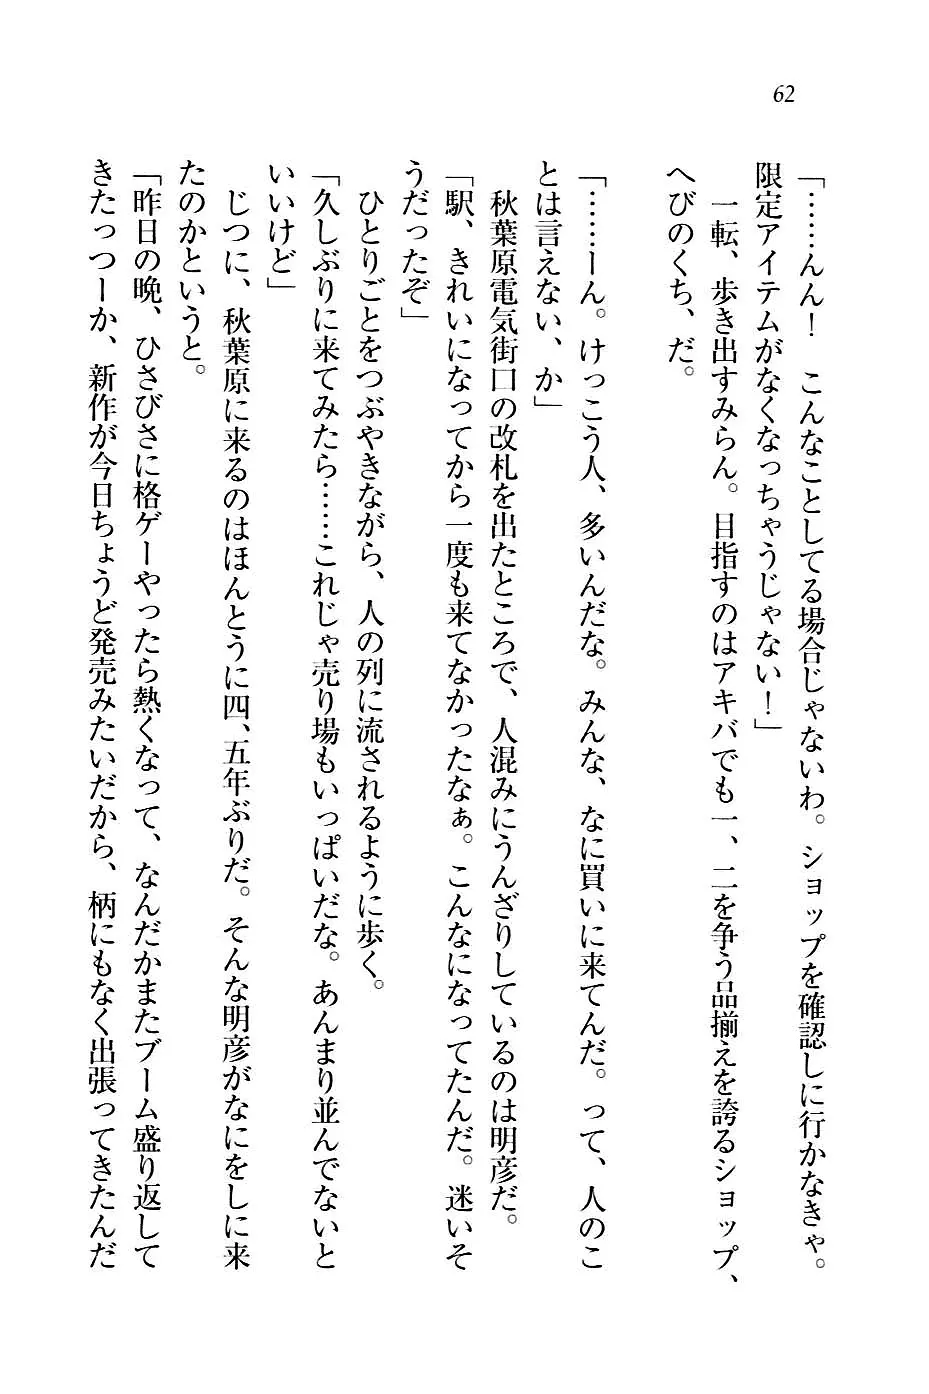 62
「……んん！　こんなことしてる場合じゃないわ。ショップを確認しに行かなきゃ。
限定アイテムがなくなっちゃうじゃない！」
　一転、歩き出すみらん。目指すのはアキバでも一、二を争う品揃えを誇るショップ、
へびのくち、だ。
「……ーん。けっこう人、多いんだな。みんな、なに買いに来てんだ。って、人のこ
とは言えない、か」
　秋葉原電気街口の改札を出たところで、人混みにうんざりしているのは明彦だ。
「駅、きれいになってから一度も来てなかったなぁ。こんなになってたんだ。迷いそ
うだったぞ」
　ひとりごとをつぶやきながら、人の列に流されるように歩く。
「久しぶりに来てみたら……これじゃ売り場もいっぱいだな。あんまり並んでないと
いいけど」
　じつに、秋葉原に来るのはほんとうに四、五年ぶりだ。そんな明彦がなにをしに来
たのかというと。
「昨日の晩、ひさびさに格ゲーやったら熱くなって、なんだかまたブーム盛り返して
きたっつーか、新作が今日ちょうど発売みたいだから、柄にもなく出張ってきたんだ